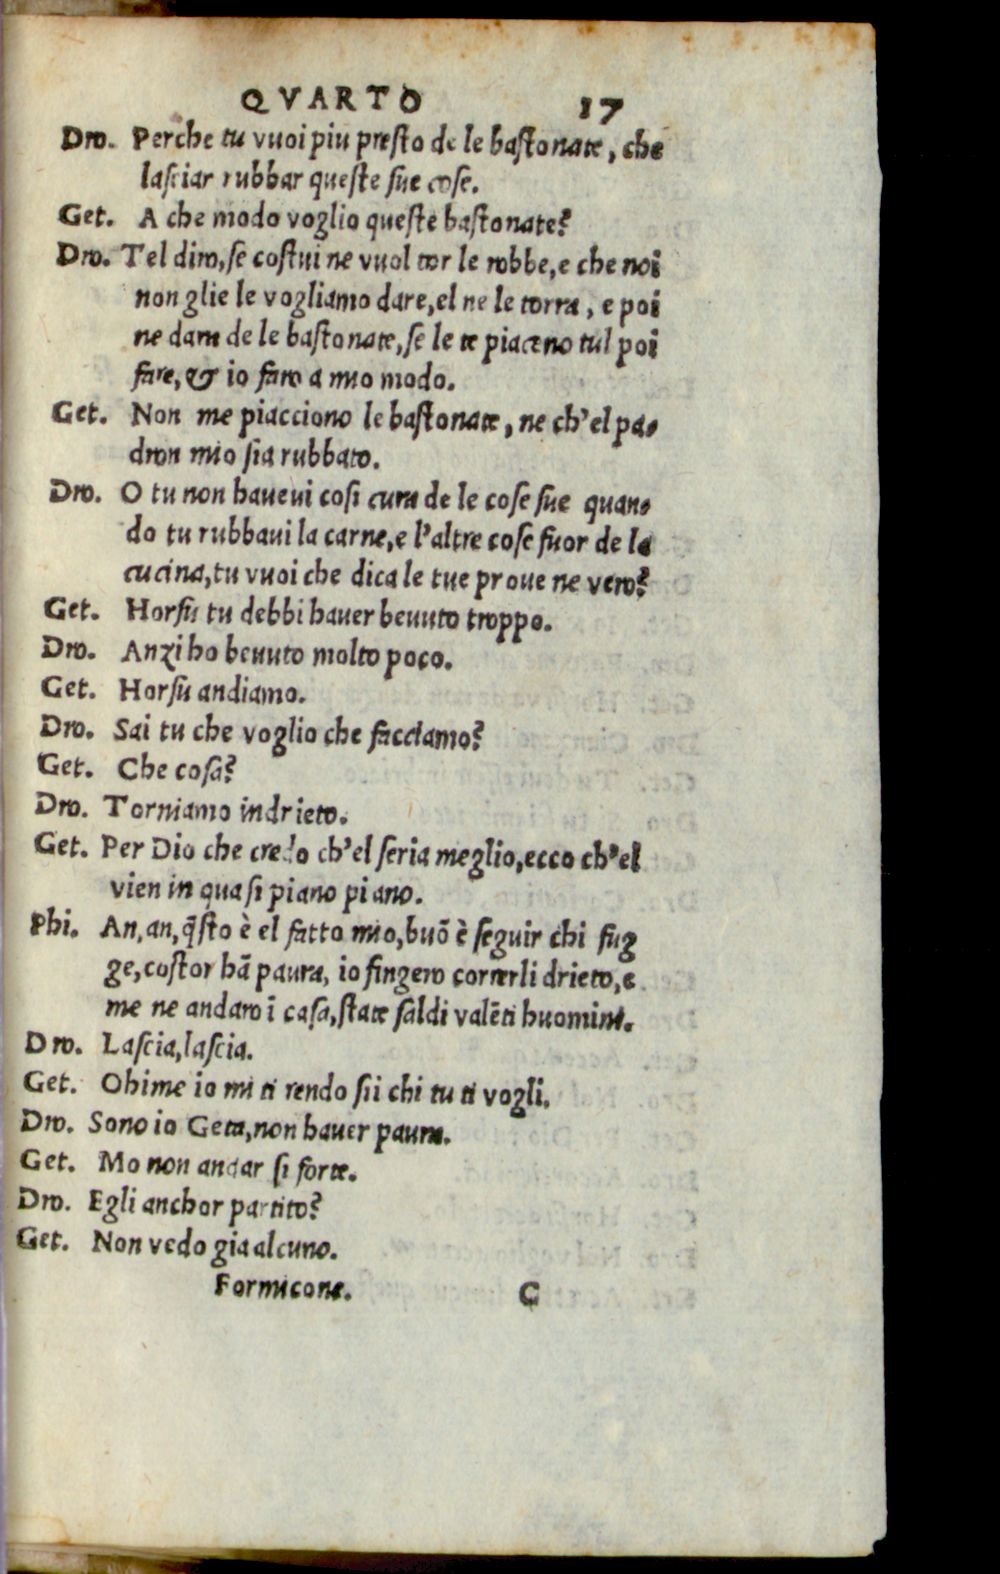 QVARTO 17
Dro. Perche tu vuoi piu presto de le bastonate, che
lasciar rubbar queste sue cose.
Get. A che modo voglio queste bastonate?
Dro. Tel diro, se costui ne vuol tor le robbe, e che noi
non glie le vogliamo dare, el ne le torra, e poi
ne dara de le bastonate, se le te piaceno tul poi
fare, & io faro a mio modo.
Get. Non me piacciono le bastonate, ne ch'el pa-
dron mio sia rubbato.
Dro. O tu non haueui cosi cura de le cose sue quan-
do tu rubbaui la carne, e l'altre cose fuor de la
cucina, tu vuoi che dica le tue proue ne vero?
Get. Horsu tu debbi hauer beuuto troppo.
Dro. Anzi ho beuuto molto poco.
Get. Horsu andiamo.
Dro. Sai tu che voglio che facciamo?
Get. Che cosa?
Dro. Torniamo indrieto.
Get. Per Dio che credo ch'el seria meglio, ecco ch'el
vien in qua si piano piano.
Phi. An, an, q̃sto è el fatto mio, buõ è seguir chi fug
ge, costor hã paura, io fingero correrli drieto, e
me ne andaro ĩ casa, state saldi valẽti huomini.
Dro. Lascia, lascia.
Get. Ohime io mi ti rendo sii chi tu ti vogli.
Dro. Sono io Geta, non hauer paura.
Get. Mo non andar si forte.
Dro. Egli anchor partito?
Get. Non vedo gia alcuno.
Formicone. C